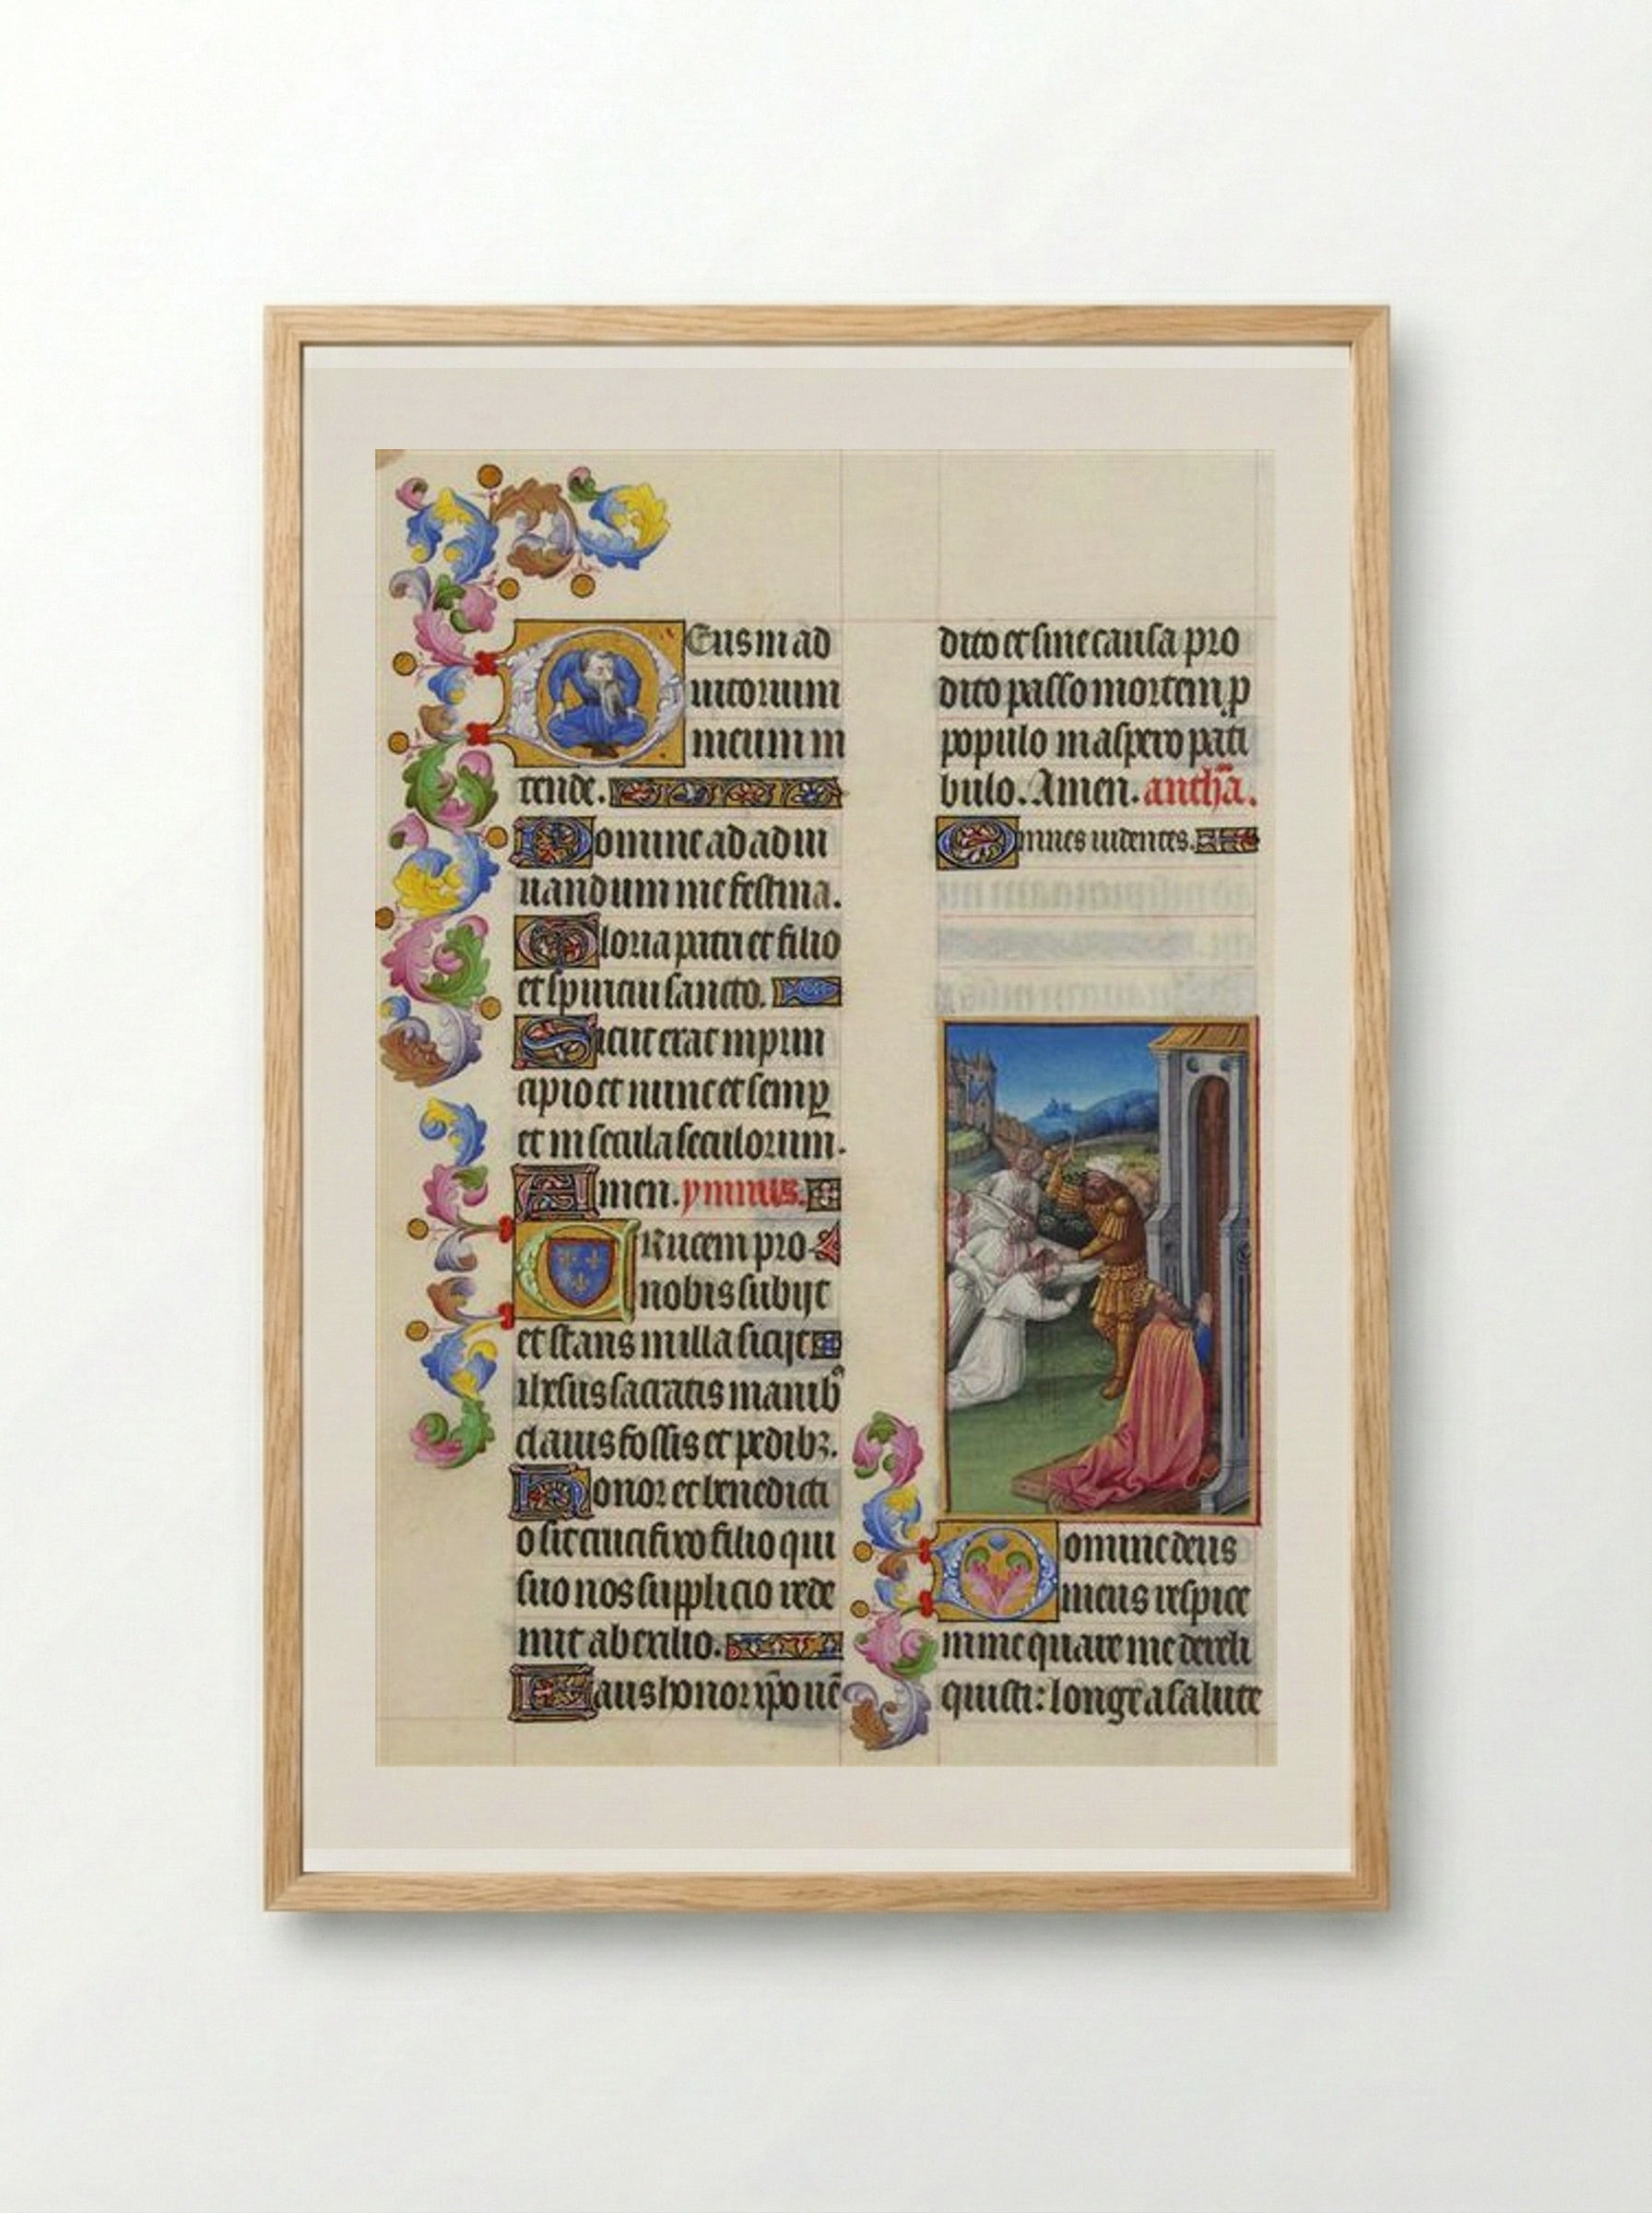 Deus in ad
iutorium
meum in
tende.
Domine ad adiu
uandum me festina.
Gloria patri et filio
et spiritui sancto.
Sicut erat in prin
cipio et nunc et semꝑ
et in secula seculorum.
Amen. ymnus.
Crucem pro
nobis subijt
et stans in illa sicijt
ihesus sacratis manibꝰ
clauis fossis et pedibꝫ.
Honor et benedicti
o sit crucifixo filio qui
suo nos supplicio rede
mit ab exilio.
Laus honor xp̄o uē
dito et sine causa pro
dito passo mortem ꝑ
populo in aspero pati
bulo. Amen. antħa.
Omnes uidentes.
Domine deus
meus respice
in me quare me dereli
quisti: longe a salute